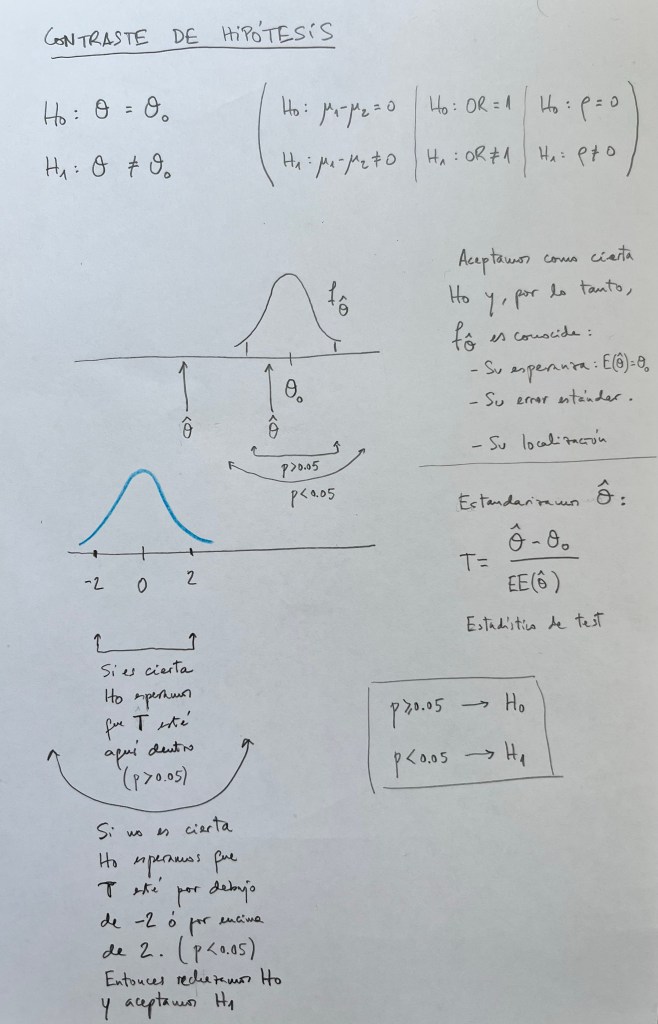 CONTRASTE DE HIPÓTESIS
H₀: θ = θ₀
H₁: θ ≠ θ₀
H₀: μ₁-μ₂ = 0
H₁: μ₁-μ₂ ≠ 0
H₀: OR = 1
H₁: OR ≠ 1
H₀: ρ = 0
H₁: ρ ≠ 0
f_θ̂
θ̂
θ̂
θ₀
p>0.05
p<0.05
Aceptamos como cierta
H₀ y, por lo tanto,
f_θ̂ es conocida:
- Su esperanza: E(θ̂)=θ₀
- Su error estándar.
- Su localización
Estandarizamos θ̂:
T = (θ̂ - θ₀) / EE(θ̂)
Estadístico de test
-2 0 2
Si es cierta
H₀ esperamos
que T esté
aquí dentro
(p>0.05)
Si no es cierta
H₀ esperamos que
T esté por debajo
de -2 ó por encima
de 2. (p<0.05)
Entonces rechazamos H₀
y aceptamos H₁
p≥0.05 → H₀
p<0.05 → H₁